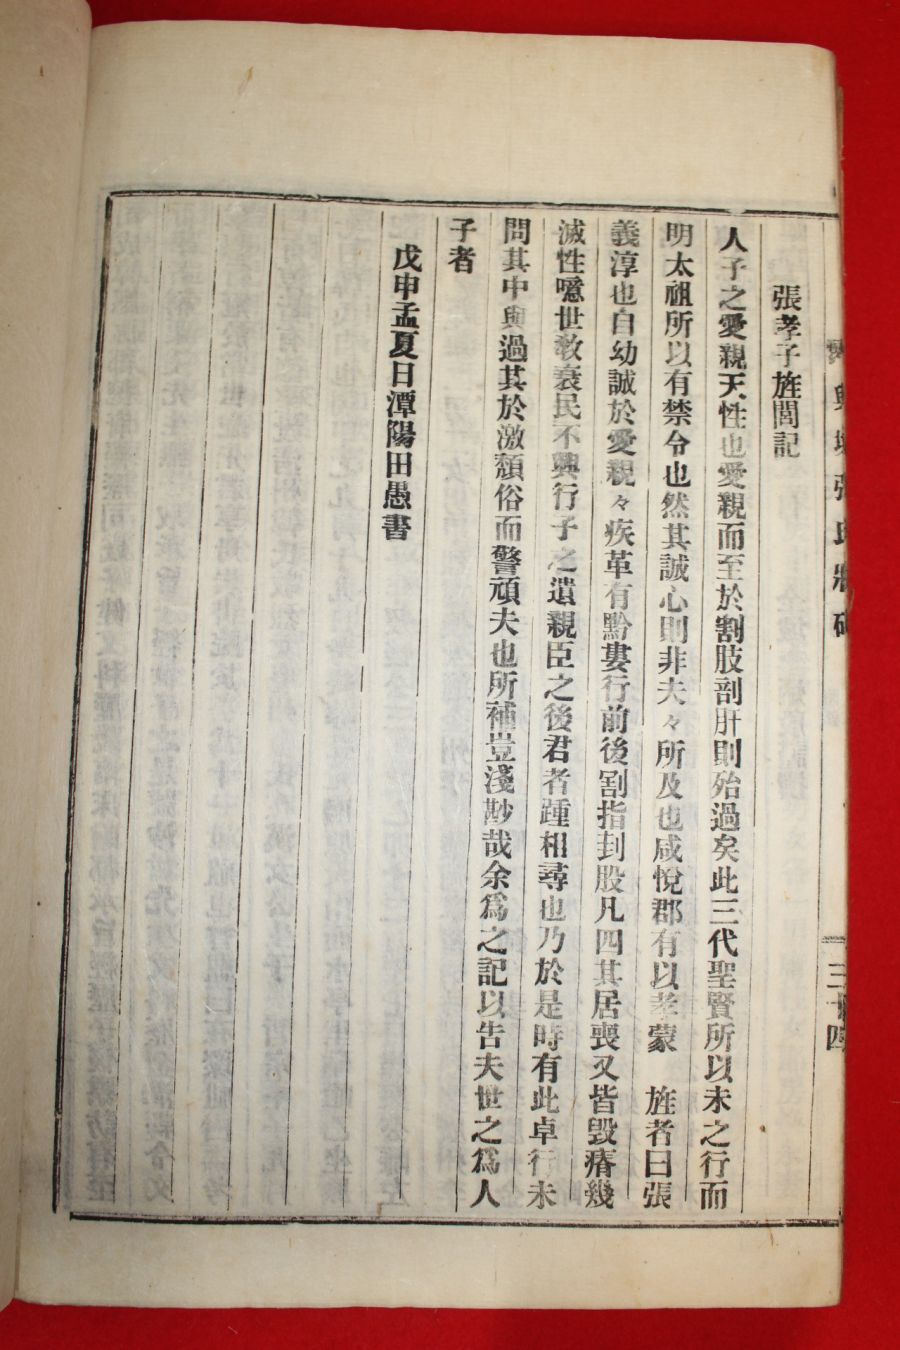 張孝子旌閭記
人子之愛親天性也愛親而至於割肢剖肝則殆過矣此三代聖賢所以未之行而
明太祖所以有禁令也然其誠心則非夫々所及也咸悅郡有以孝蒙 旌者曰張
義淳也自幼誠於愛親々疾革有黔婁行前後割指刲股凡四其居喪又皆毀瘠幾
滅性噫世敎衰民不興行子之遺親臣之後君者踵相尋也乃於是時有此卓行未
問其中與過其於激頹俗而警頑夫也所補豈淺尠哉余爲之記以告夫世之爲人
子者
戊申孟夏日潭陽田愚書
興 張氏
三十四